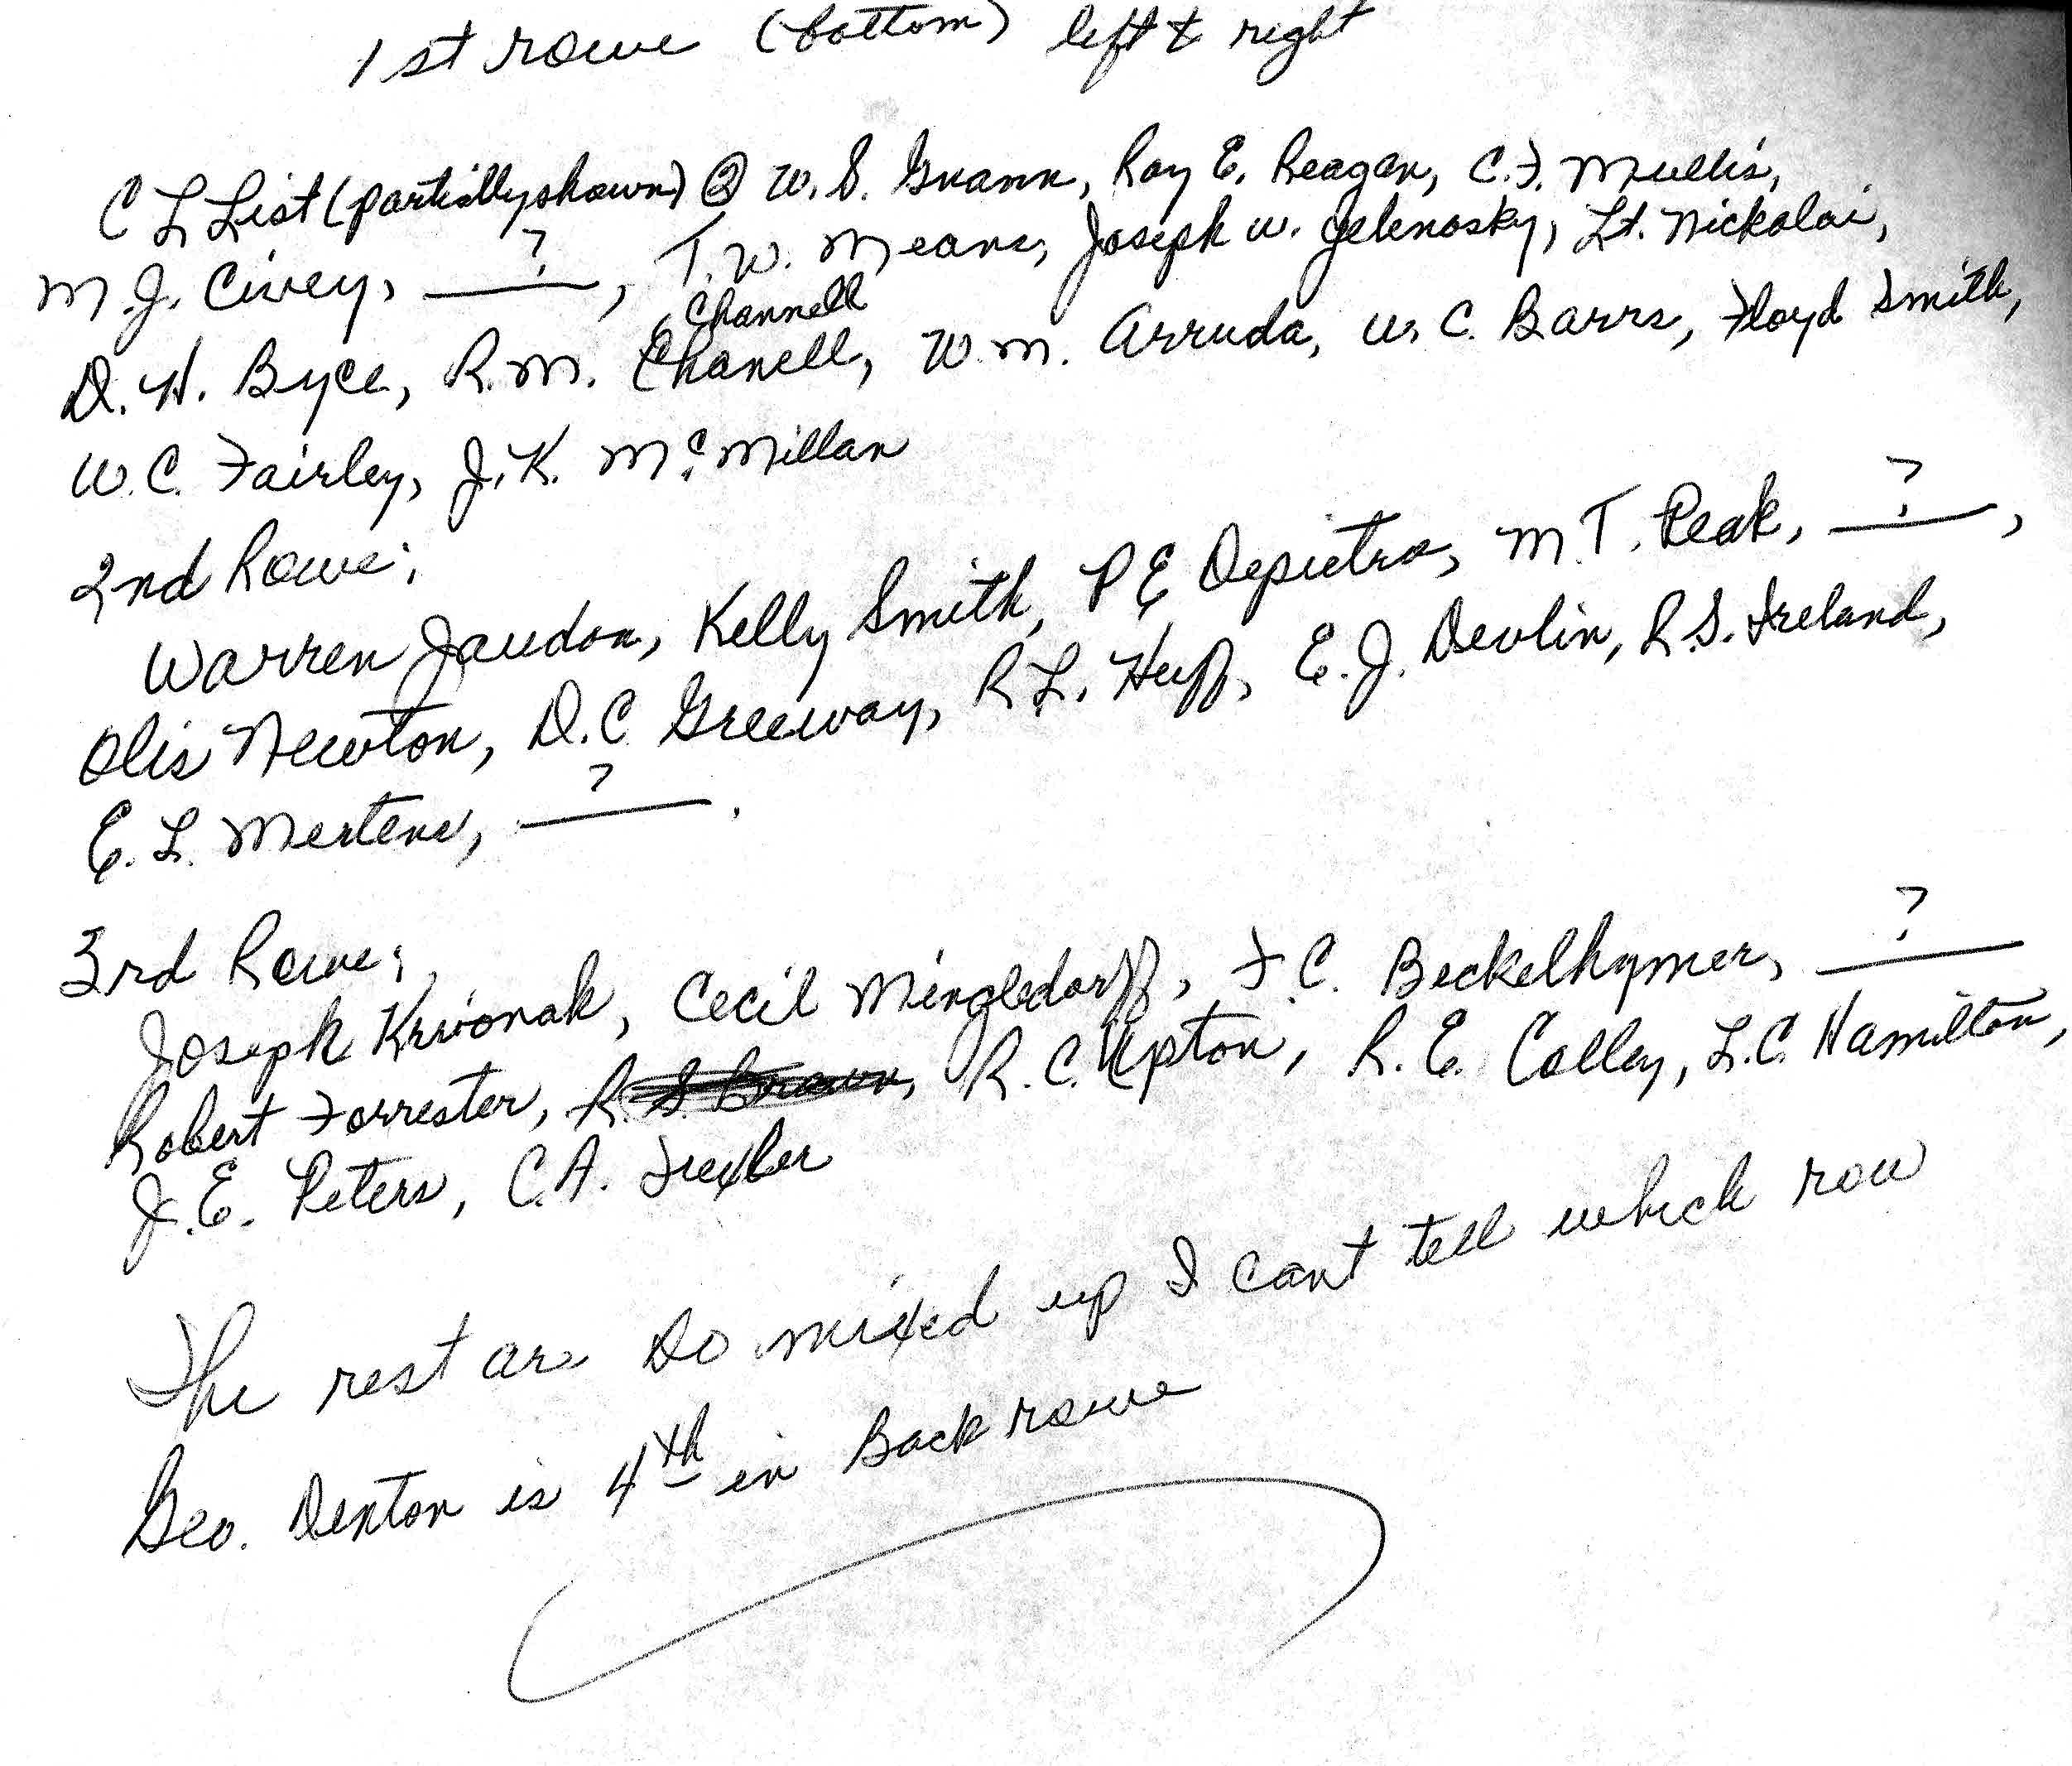 1st rowe (bottom) left & right
C L List (partially shown) ② W. S. Gnann, Roy E. Reagan, C. F. Mullis,
M. J. Civey, ___?___, T. W. Means, Joseph W. Jelenosky, Lt. Nickolai,
Channell
D. H. Byce, R. M. Chanell, W. M. Arruda, W. C. Barrs, Floyd Smith,
W. C. Fairley, J. K. McMillan
2nd Rowe:
Warren Jaudon, Kelly Smith, P E Depietro, M. T. Peak, ___?___,
Olis Newton, D. C. Greeway, R L. Huff, E. J. Devlin, R. S. Ireland,
E. L. Mertens, ___?___.
3rd Rowe:
Joseph Krivonak, Cecil Mingledorff, F. C. Beckelhymer, ___?___
Robert Forrester, R. S. Brown, R. C. Upton, R. E. Colley, L. C. Hamilton,
J. E. Peters, C. A. Trexler
The rest are so mixed up I cant tell which row
Geo. Denton is 4th in Back rowe